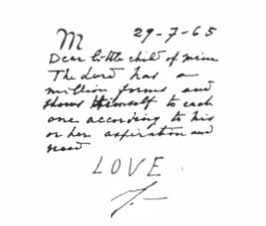 M 29-7-65
Dear little child of mine
The Lord has a
million forms and
shows Himself to each
one according to his
or her aspiration and
need
LOVE